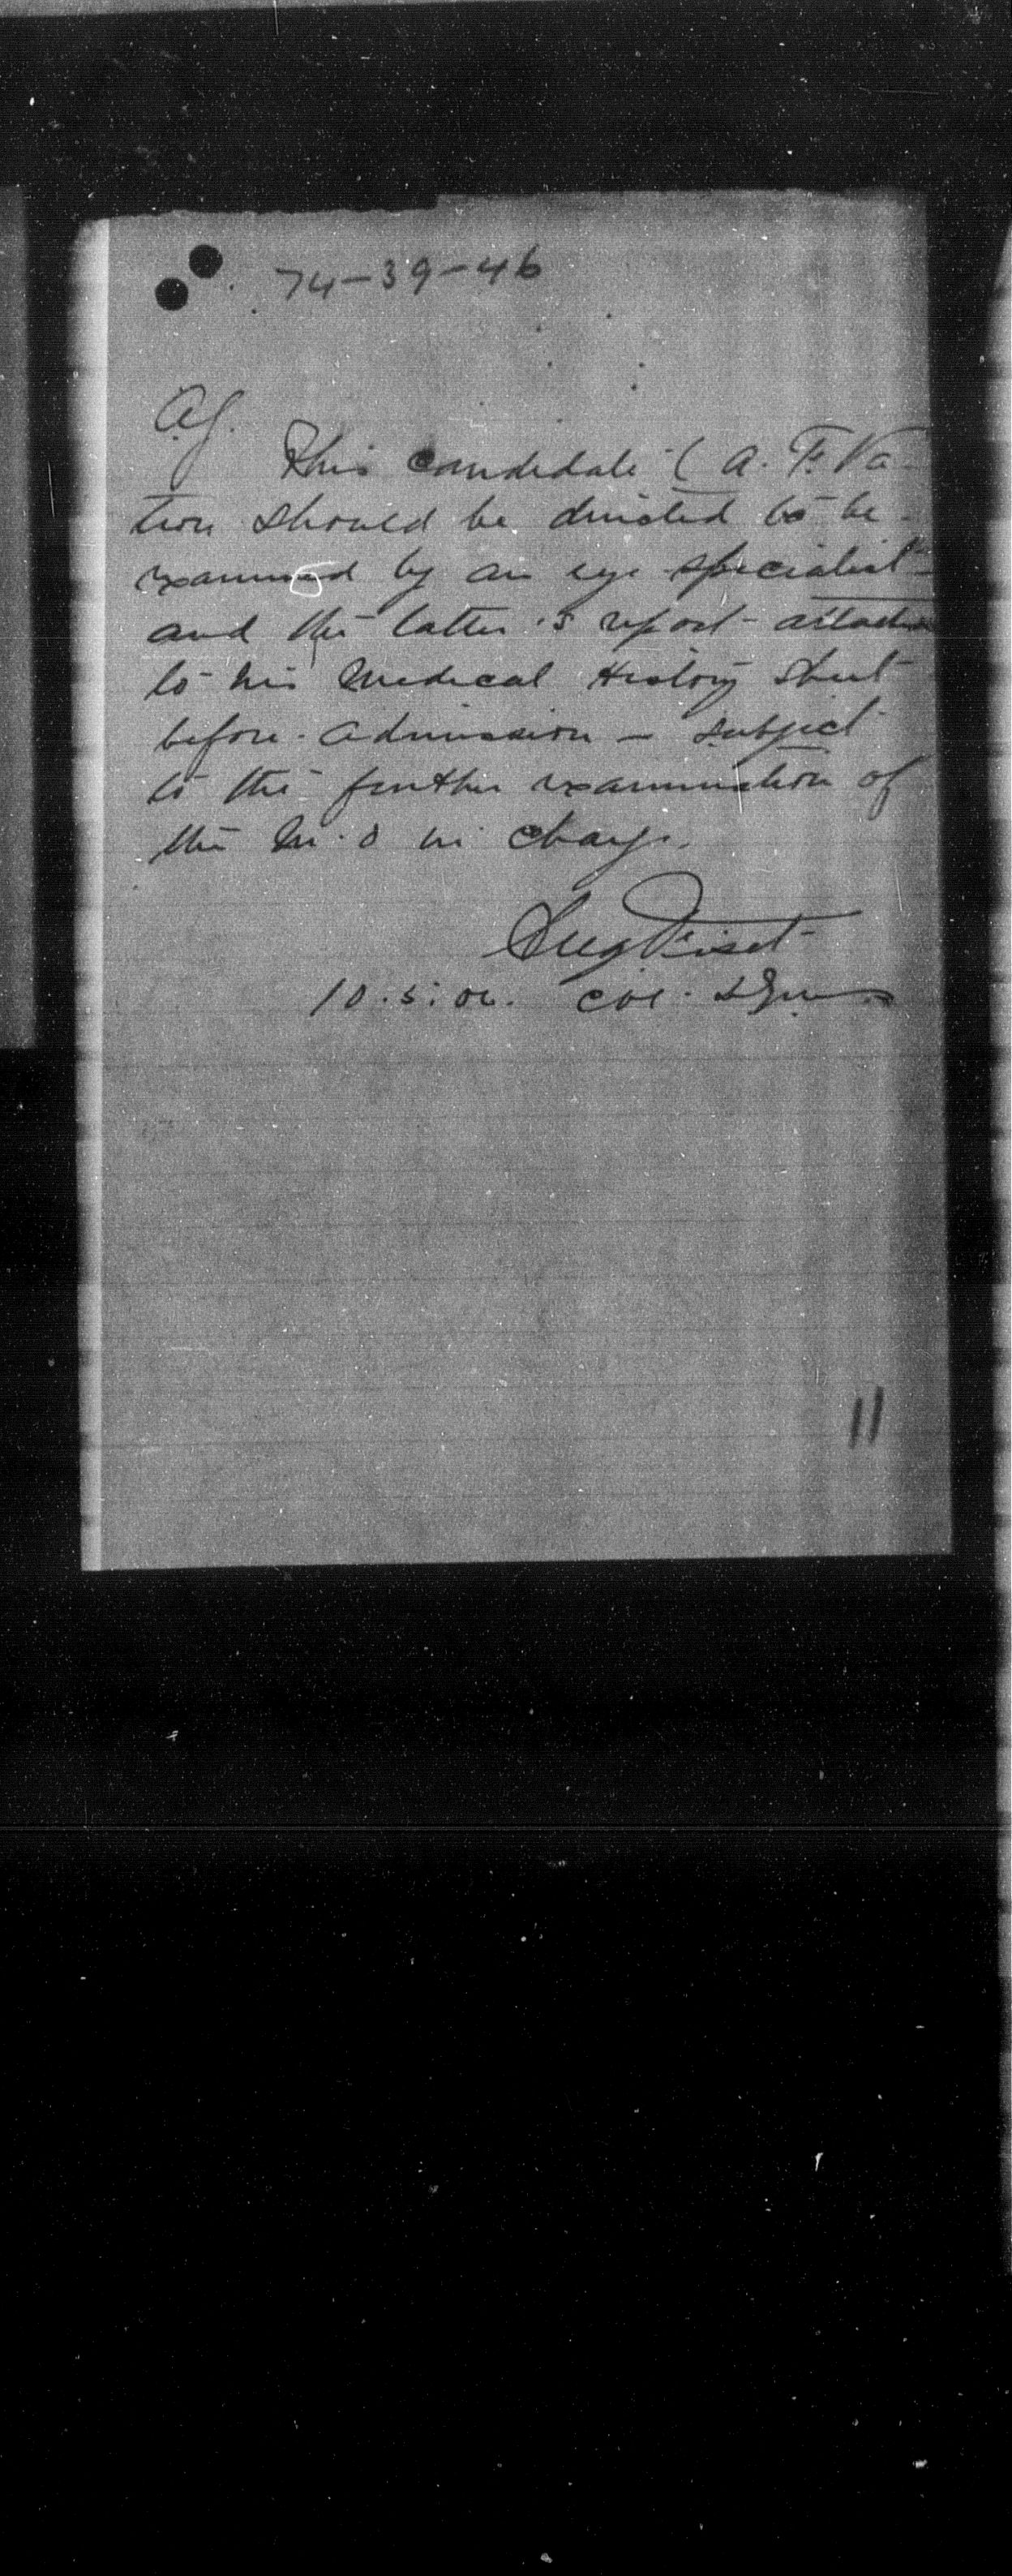 74-39-46
A.G.
This candidate (A. F. Va
tion should be directed to be
examined by an eye specialist
and the latter's report attached
to his Medical History Sheet
before admission - subject
to the further examination of
the M.O in charge.
Fiset
10.5.06. Col.
11